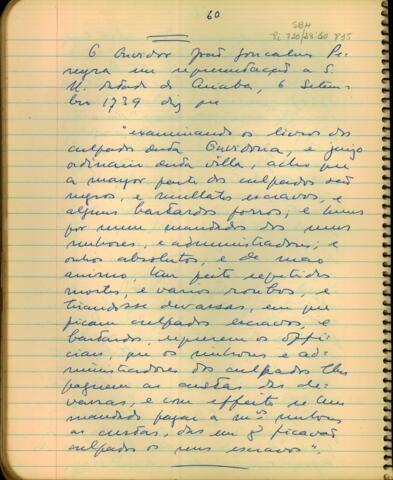 60
SBH
Pi 720/23:60 P95
O Ouvidor João Gonçalves Pe-
reyra em representação a S.
M. datada de Cuiabá, 6 Setem-
bro 1739 diz que
"examinando os livros dos
culpados desta Ouvidoria, e juizo
ordinario desta villa, acho que
a mayor parte dos culpados são
negros, e mullatos escravos, e
alguns bastardos forros; e huns
por serem mandados dos seus
senhores, e administradores; e
outros absolutos, e de mao
animo, tem feito repetidas
mortes, e varios roubos, e
tirandosse devassas, em que
ficam culpados escravos, e
bastardos, requerem os offi-
ciais, que os senhores e ad-
ministradores dos culpados lhes
paguem as custas das de-
vassas, e com effeito se tem
mandado pagar a m.os senhores
as custas, das em q ficavão
culpados os seus escravos".